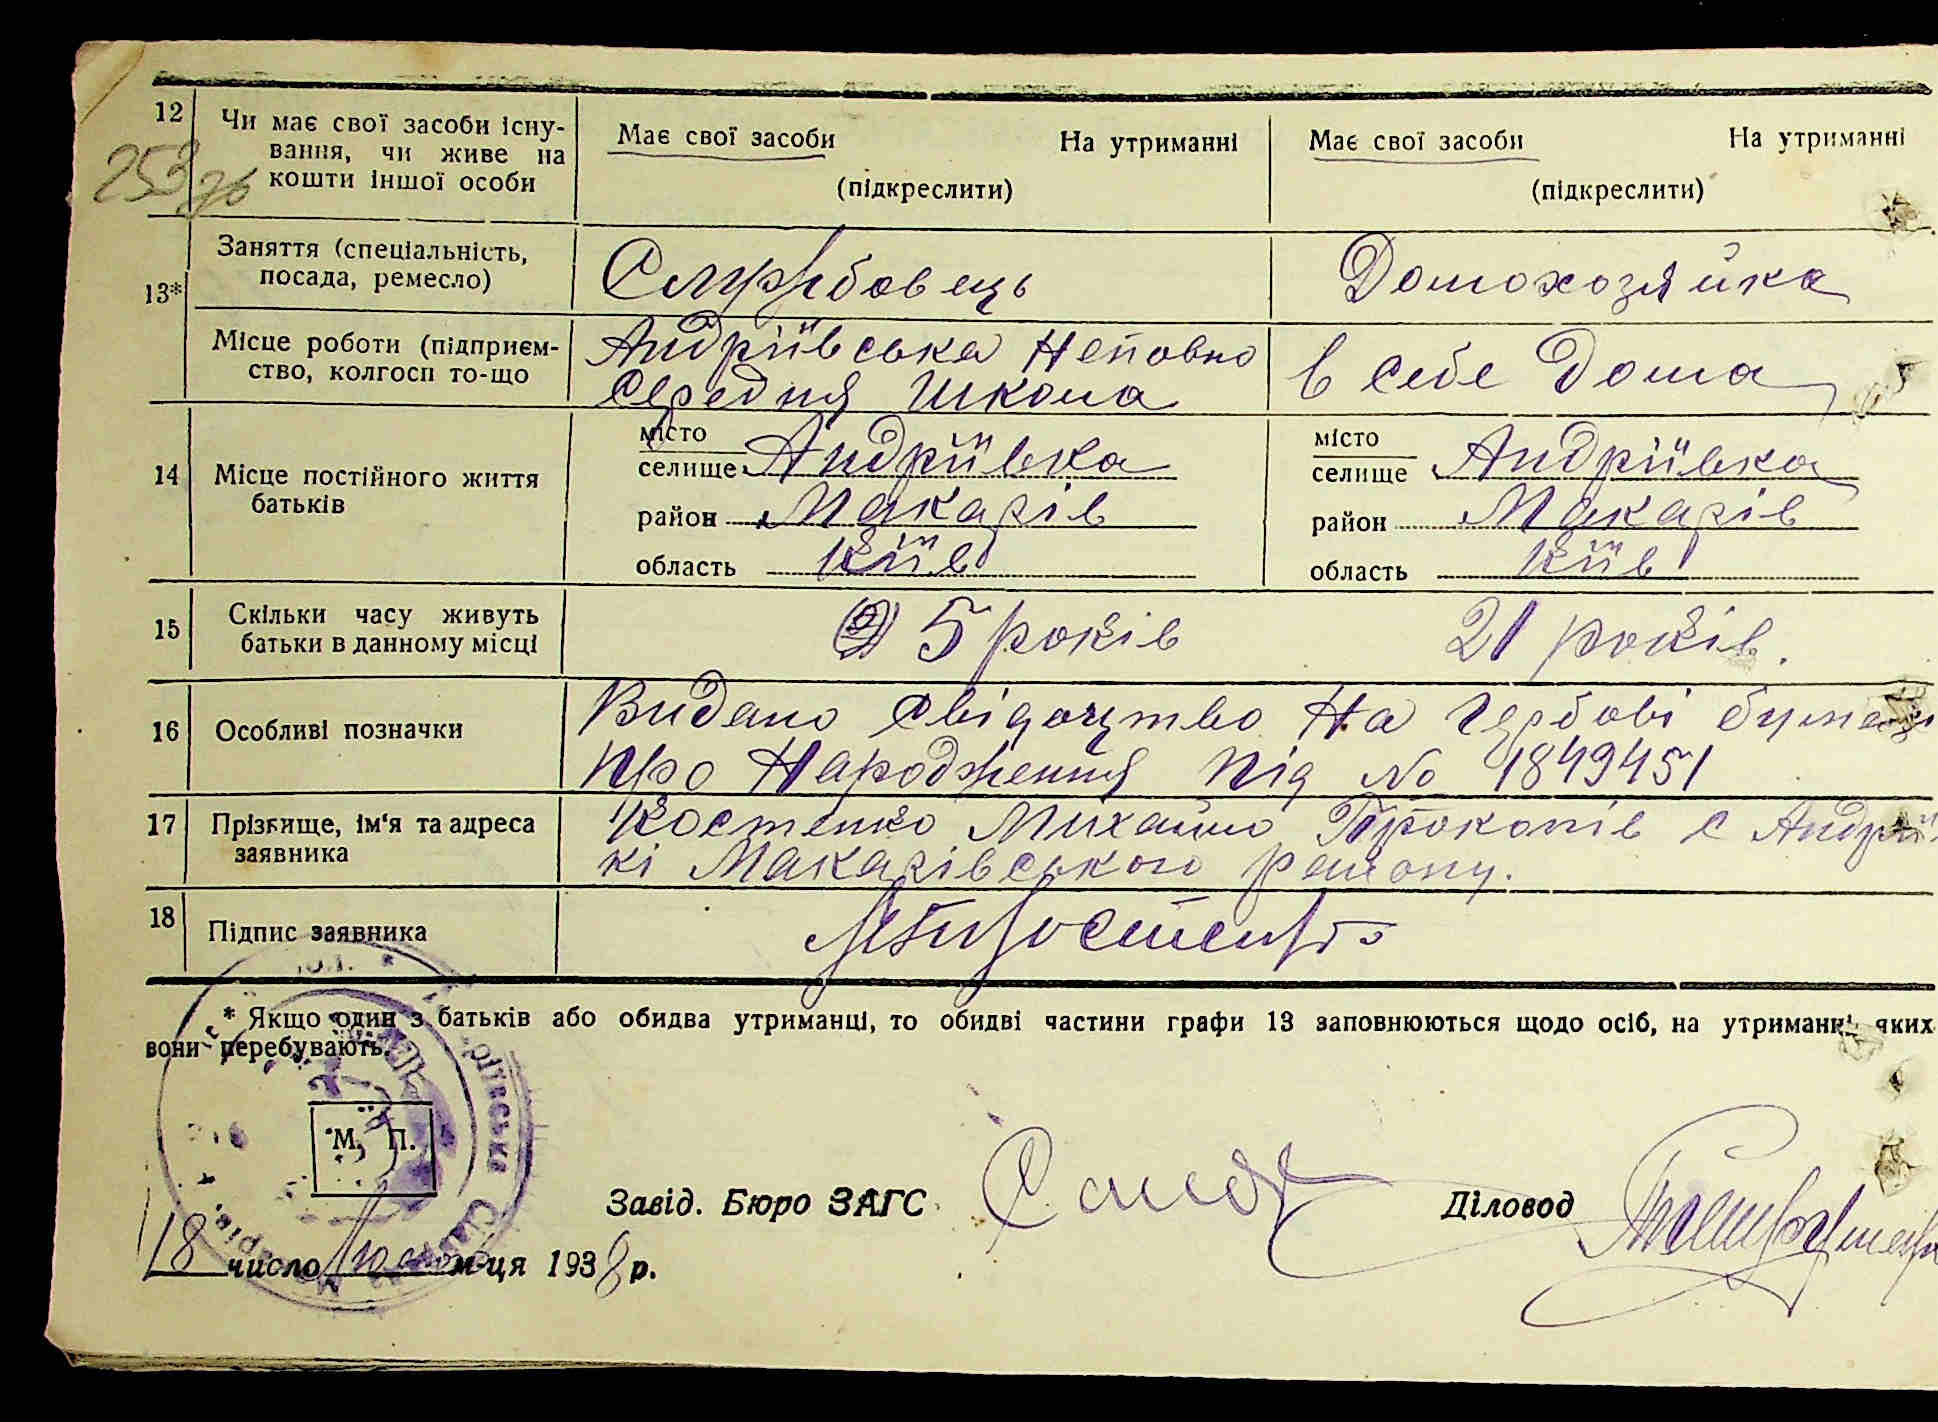 12
Чи має свої засоби існу-
вання, чи живе на
кошти іншої особи
Має свої засоби На утриманні
(підкреслити)
Має свої засоби На утриманні
(підкреслити)
253 зв
13*
Заняття (спеціальність,
посада, ремесло)
Службовець
Домохозяйка
Місце роботи (підприєм-
ство, колгосп то-що
Андріївська Неповно
Середня Школа
в себе Дома
14
Місце постійного життя
батьків
місто
селище Андріївка
район Макарів
область Київ
місто
селище Андріївка
район Макарів
область Київ
15
Скільки часу живуть
батьки в данному місці
5 років
21 років.
16
Особливі позначки
Видано Свідоцтво На Гербові бумазі
про Народження під № 1849451
17
Прізвище, ім'я та адреса
заявника
Костенко Михайло Прокопів с Андрїї
кі Макарівського району.
18
Підпис заявника
* Якщо один з батьків або обидва утриманці, то обидві частини графи 13 заповнюються щодо осіб, на утриманні яких
вони перебувають.
М. П.
Завід. Бюро ЗАГС
Діловод
18 число м-ця 1938 р.